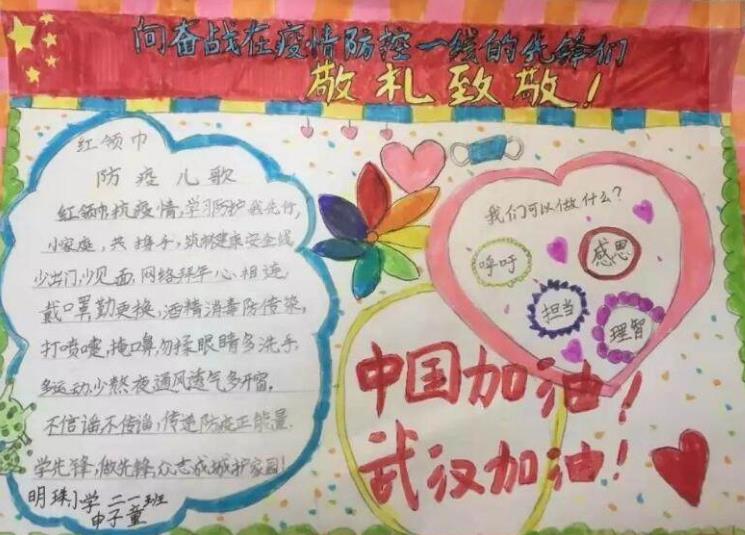 向奋战在疫情防控一线的先锋们
敬礼致敬!
红领巾
防疫儿歌
红领巾抗疫情,学习防护我先行,
小家庭,共携手,筑牢健康安全线
少出门,少见面,网络拜年心相连
戴口罩,勤更换,酒精消毒防传染,
打喷嚏,掩口鼻,勿揉眼睛多洗手
多运动,少熬夜,通风透气多开窗,
不信谣不传谣,传递防疫正能量
学先锋,做先锋,众志成城护家园!
明珠小学 二一班
申子童
我们可以做什么?
呼吁
感恩
担当
理智
中国加油!
武汉加油!